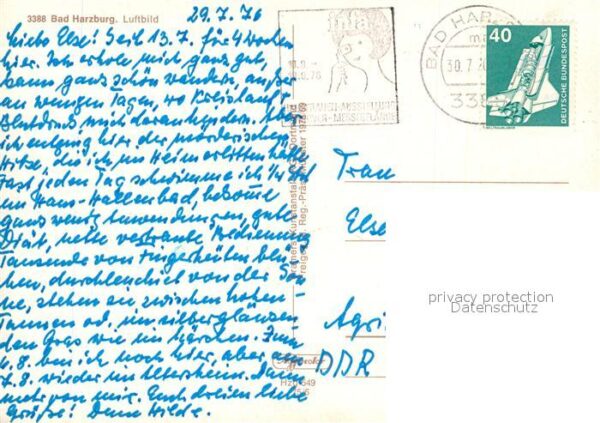 3388 Bad Harzburg. Luftbild
29.7.76
Liebe Else! Seit 13.7. für 4 Wochen
hier. Ich erhole mich ganz gut,
kann ganz schön wandern, außer
an wenigen Tagen, wo Kreislauf
Blutdruck mich daran hindern. Aber
ich entging hier der mörderischen
Hitze, die ich im Heim erlitten hätte
Fast jeden Tag schwimme ich 1/4 Std
im Haus-Hallenbad, bekomme
ganz wenig Anwendungen, gute
Diät, nette vertraute Bedienung
Tausende von Fingerhüten blü-
hen, durchleuchtet von der Son-
ne, stehen sie zwischen hohen
Tannen od. im silberglänzen-
den Gras wie im Märchen. Zum
4.8. bin ich noch hier, aber am
7.8. wieder im Altersheim. Dann
mehr von mir. Euch dreien liebe
Grüße! Deine Hilde.
BAD HARZ
30.7.76
338
40
DEUTSCHE BUNDESPOST
Frau
Else
Agri
DDR
privacy protection
Datenschutz